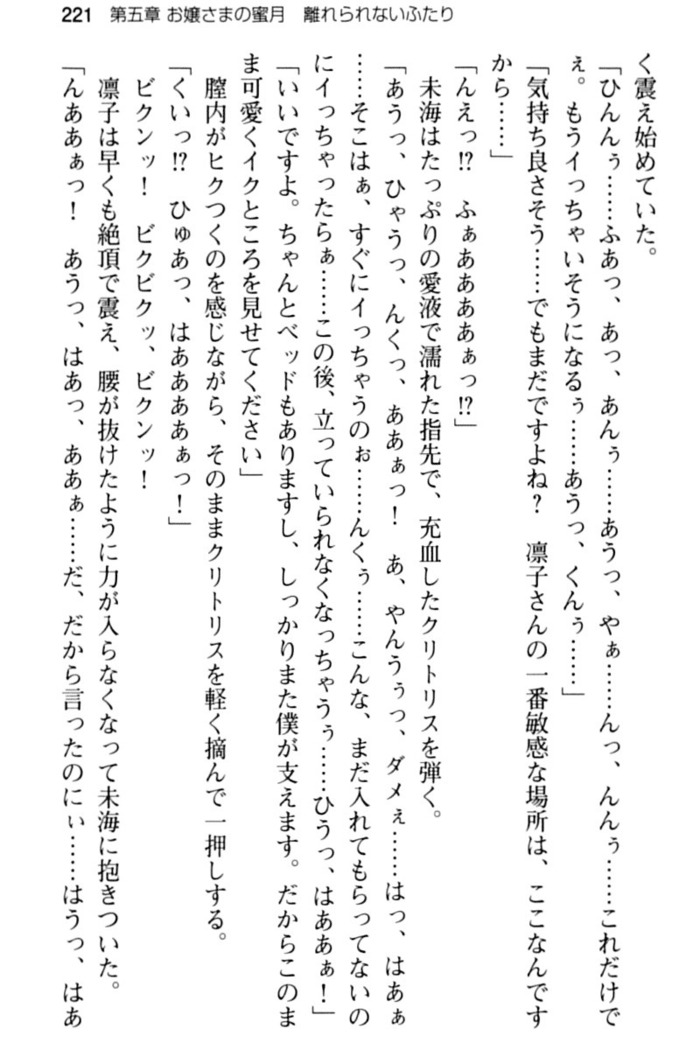 221　第五章 お嬢さまの蜜月　離れられないふたり
く震え始めていた。
「ひんんぅ……ふあっ、あっ、あんぅ……あうっ、やぁ……んっ、んんぅ……これだけで
ぇ。もうイっちゃいそうになるぅ……あうっ、くんぅ……」
「気持ち良さそう……でもまだですよね？　凛子さんの一番敏感な場所は、ここなんです
から……」
「んえっ!?　ふぁああああぁっ!?」
　未海はたっぷりの愛液で濡れた指先で、充血したクリトリスを弾く。
「あうっ、ひゃうっ、んくっ、ああぁっ！　あ、やんうぅっ、ダメぇ……はっ、はあぁ
……そこはぁ、すぐにイっちゃうのぉ……んくぅ……こんな、まだ入れてもらってないの
にイっちゃったらぁ……この後、立っていられなくなっちゃうぅ……ひうっ、はああぁ！」
「いいですよ。ちゃんとベッドもありますし、しっかりまた僕が支えます。だからこのま
ま可愛くイクところを見せてください」
　膣内がヒクつくのを感じながら、そのままクリトリスを軽く摘んで一押しする。
「くいっ!?　ひゅあっ、はああああぁっ！」
　ビクンッ！　ビクビクッ、ビクンッ！
　凛子は早くも絶頂で震え、腰が抜けたように力が入らなくなって未海に抱きついた。
「んああぁっ！　あうっ、はあっ、ああぁ……だ、だから言ったのにぃ……はうっ、はあ